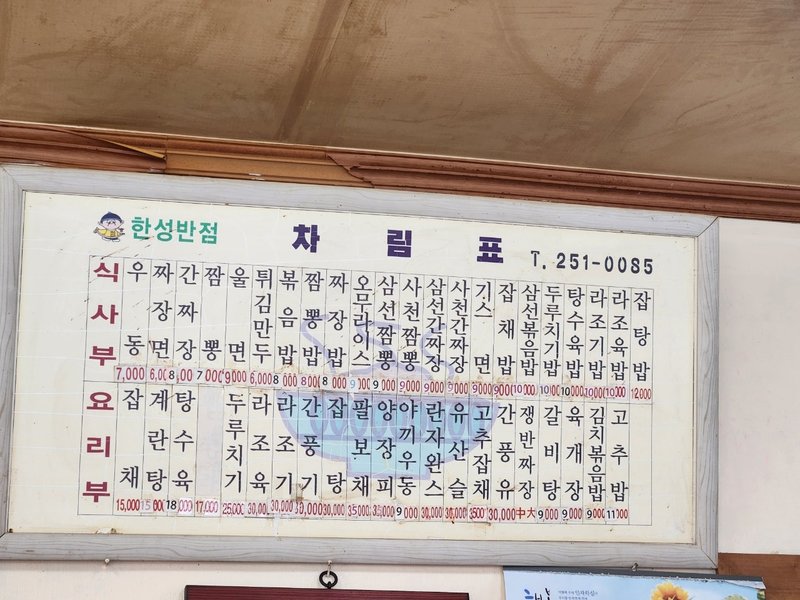 한성반점
차림표
T. 251-0085
식사부
우동 7,000
짜장면 6,000
간짜장 8,000
짬뽕 7000
울면 9000
튀김만두 6,000
볶음밥 8000
짬뽕밥 8000
짜장밥 8000
오므라이스 9000
삼선짬뽕 9000
사천짬뽕 9000
삼선간짜장 9000
사천간짜장 9000
기스면 9000
잡채밥 9000
삼선볶음밥 10000
두루치기밥 10000
탕수육밥 10000
라조기밥 10000
라조육밥 10000
잡탕밥 12,000
요리부
잡채 15,000
계란탕
탕수육 18,000
17,000
두루치기 25,000
라조육 30,000
라조기 30,000
간풍기 30,000
잡탕 30,000
팔보채 35,000
양장피 35,000
야끼우동 9,000
란자완스 30,000
유산슬 30,000
고추잡채
간풍유 30,000
쟁반짜장 中大
갈비탕 9,000
육개장 9,000
김치볶음밥 9000
고추밥 11000